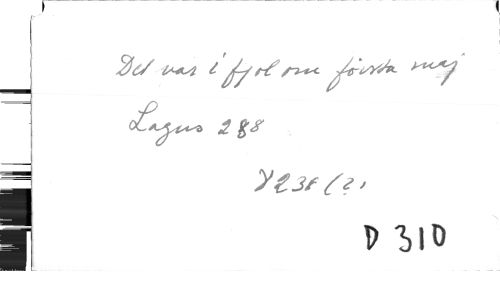 Det var i fjol om första maj
Lagus 288
γ 238 (?)
D 310